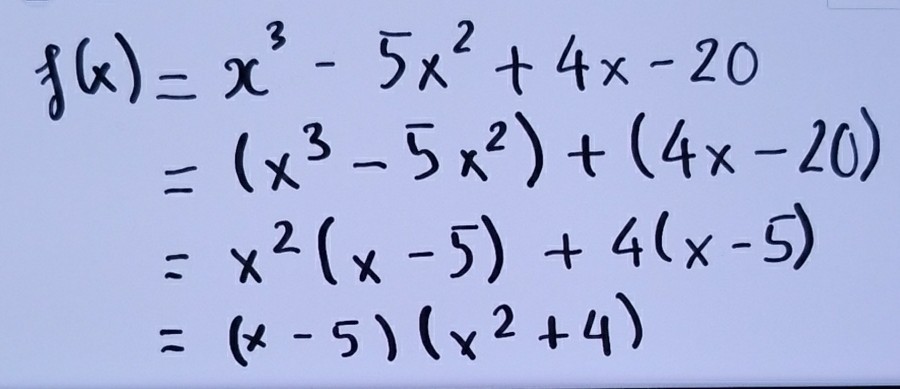 f(x) = x³ - 5x² + 4x - 20
= (x³ - 5x²) + (4x - 20)
= x²(x - 5) + 4(x - 5)
= (x - 5)(x² + 4)